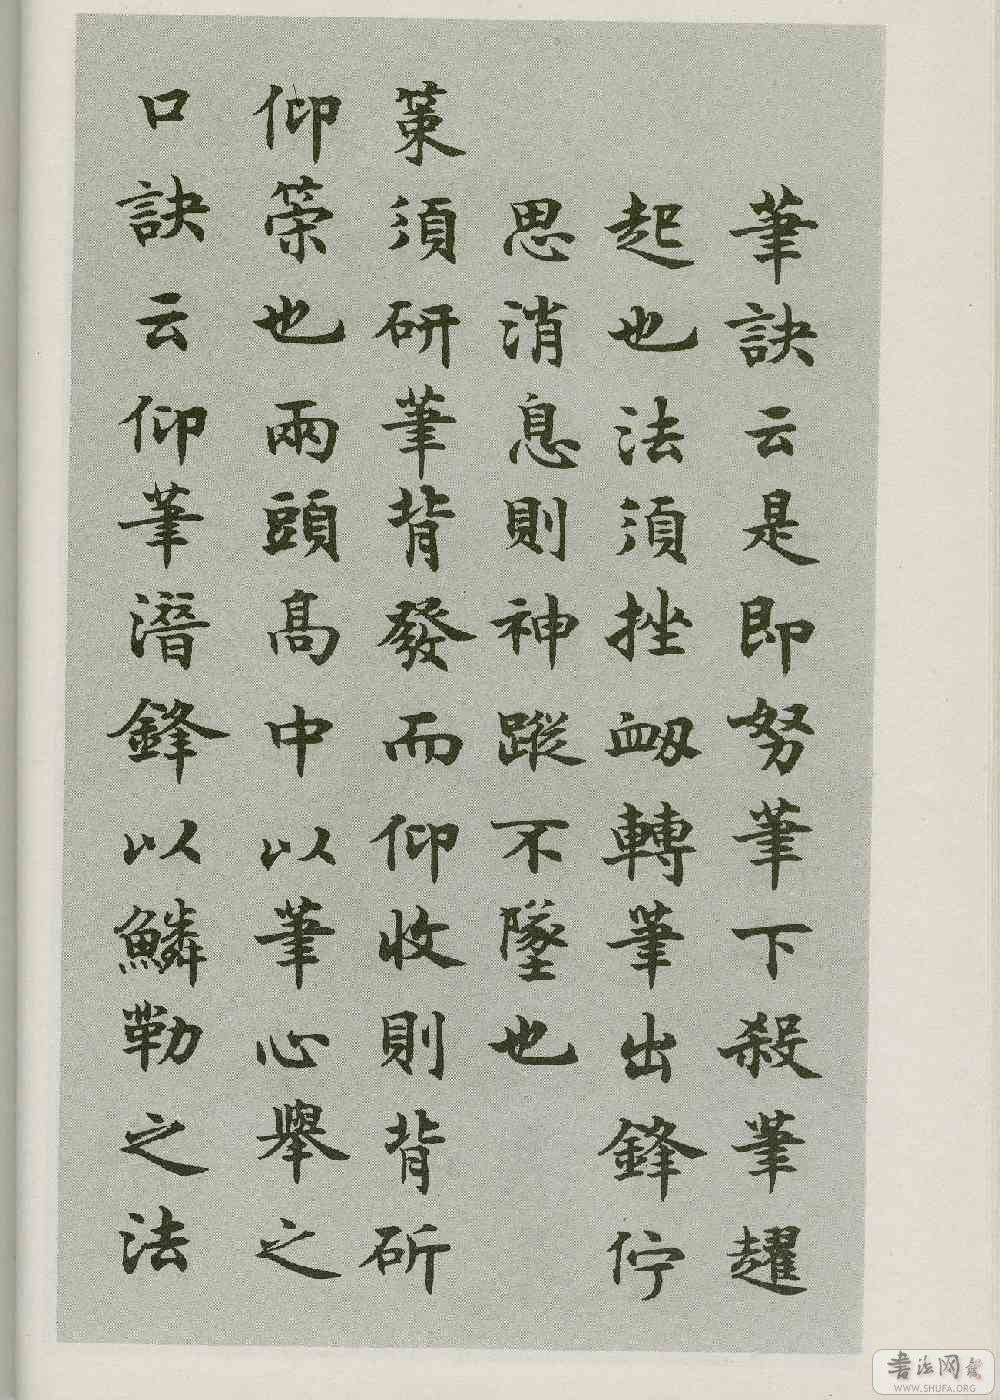 筆訣云是即努筆下殺筆趯
起也法須挫衂轉筆出鋒佇
思消息則神蹤不墜也
策須研筆背發而仰收則背斫
仰策也兩頭高中以筆心舉之
口訣云仰筆潛鋒以鱗勒之法
書法网
WWW.SHUFA.ORG